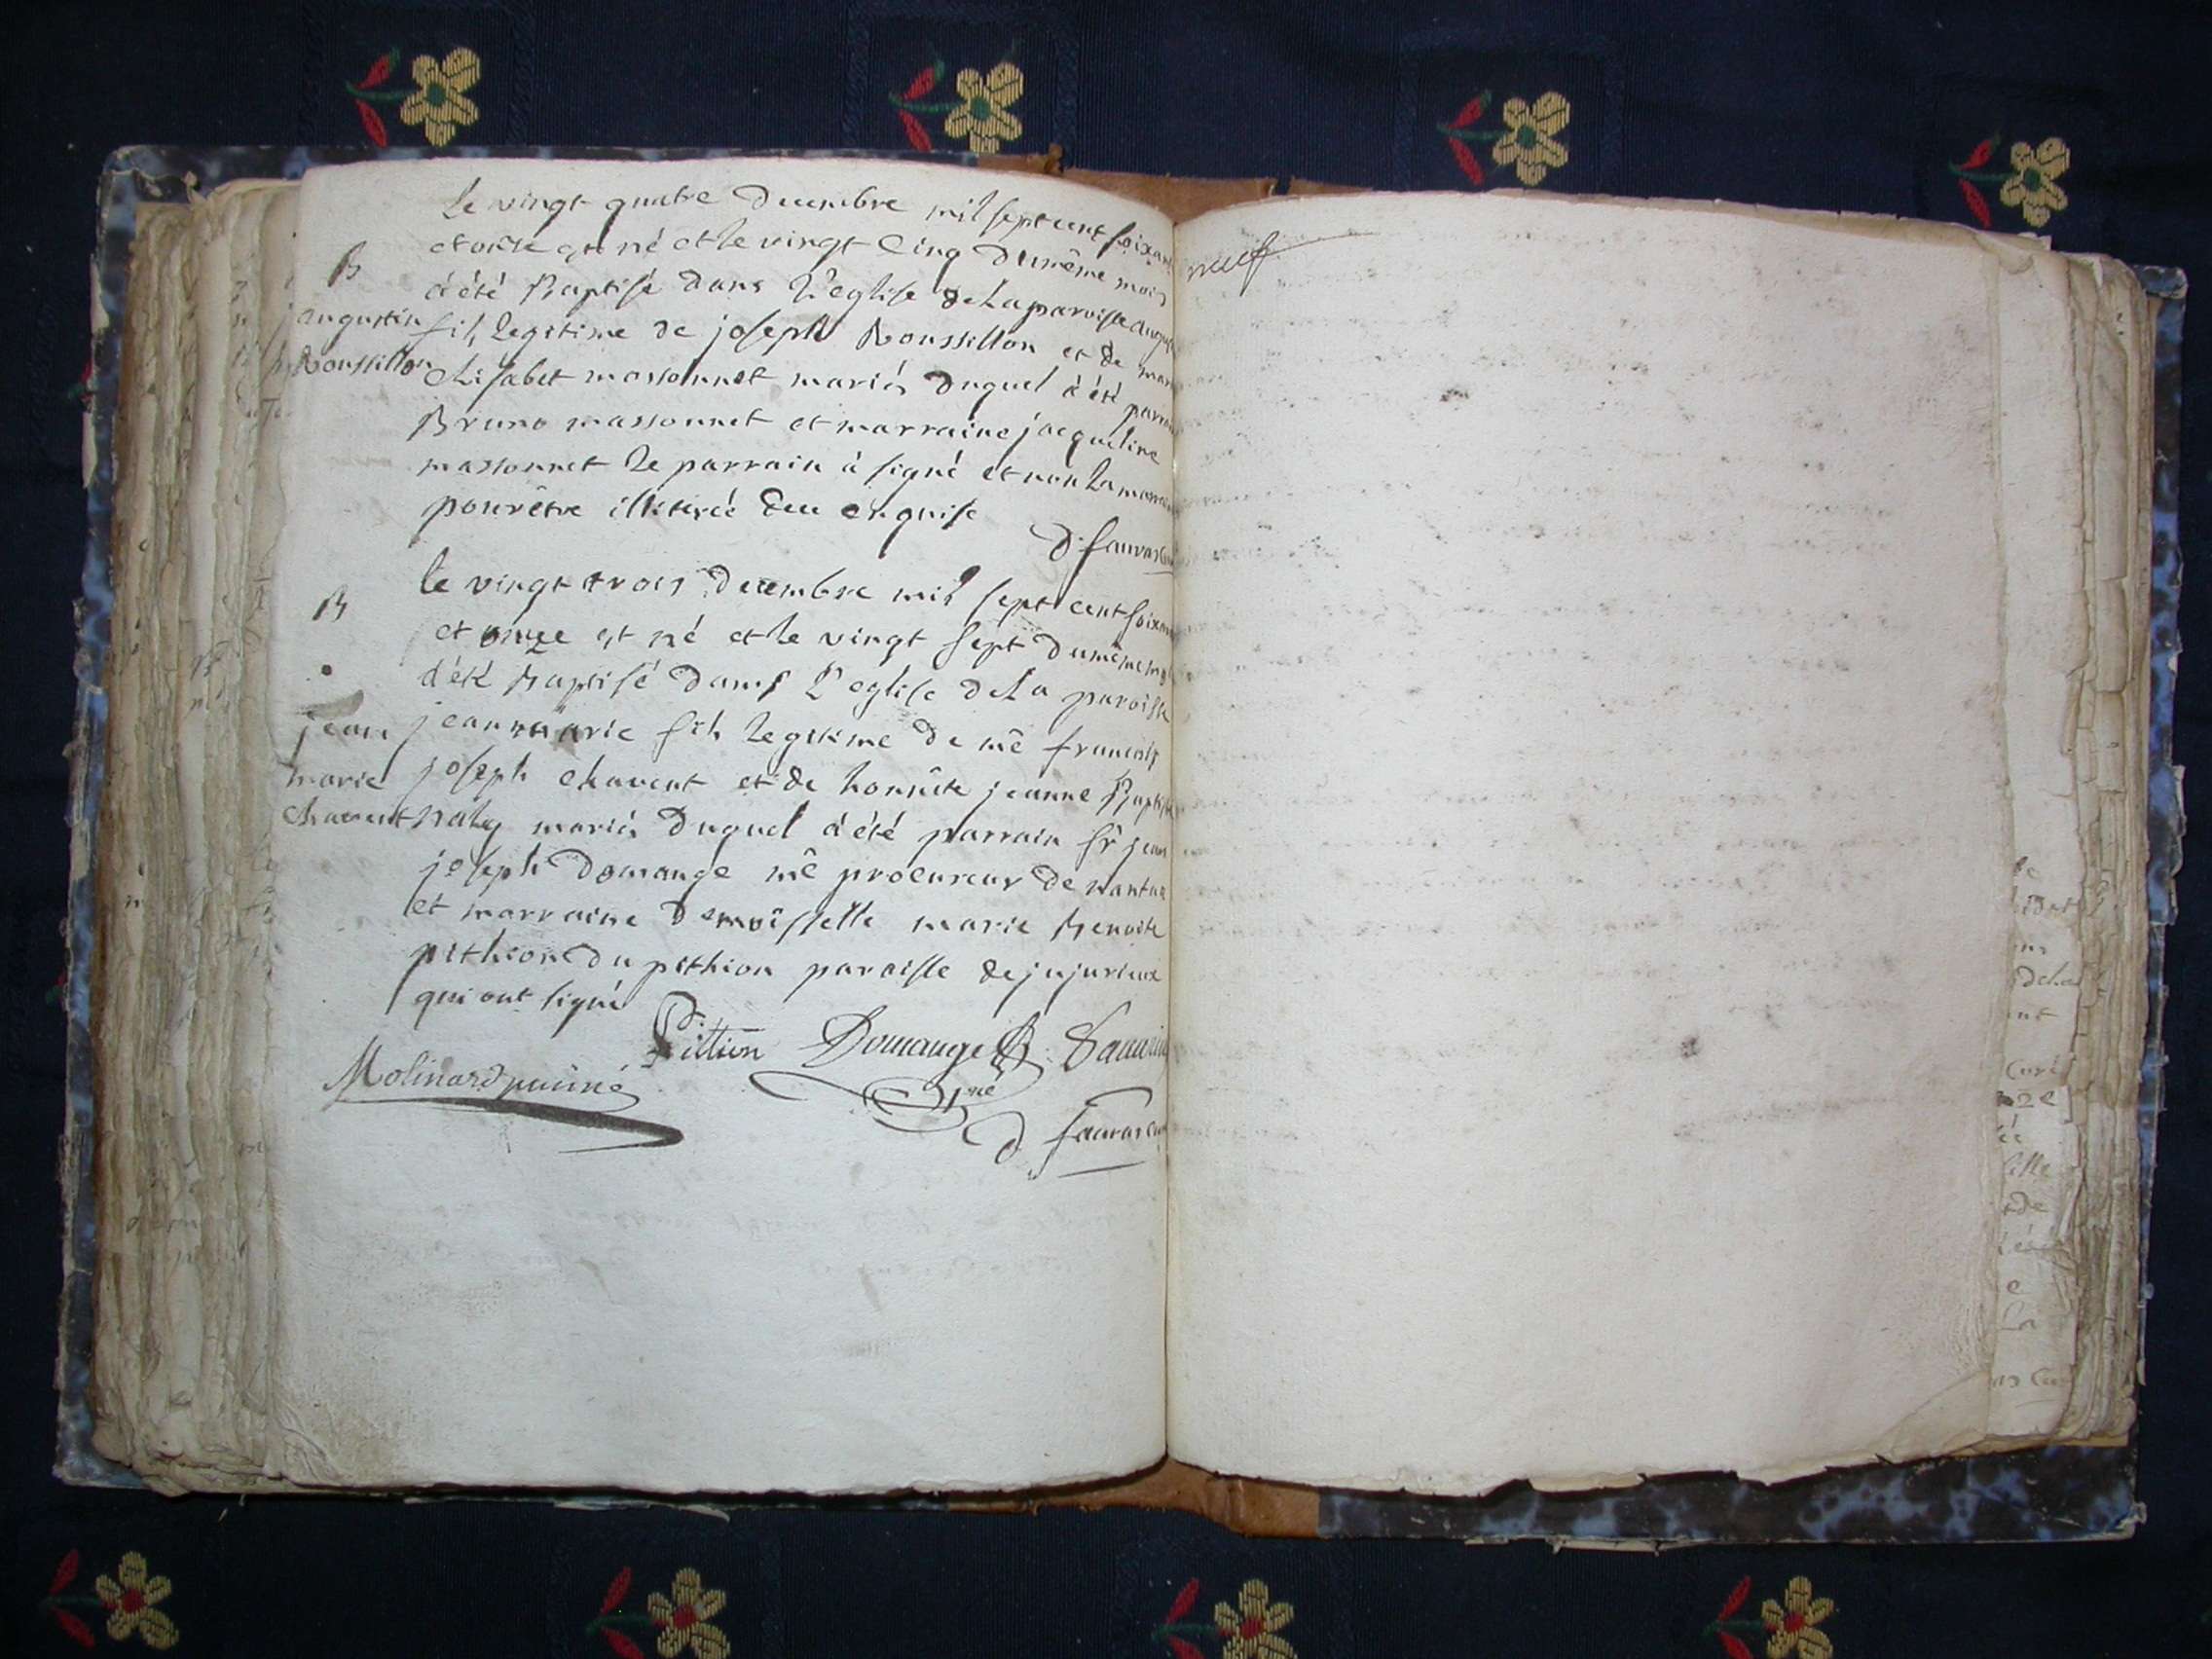 Le vingt quatre decembre mil sept cent soixan
et onse est né et le vingt cinq du même mois
B
a été Baptisé dans L'eglise de La paroisse august
augustin
fils legitime de joseph Roussillon et de mar
Roussillon
elisabet massonnet mariés duquel à été parra
Bruno massonnet et marraine jacqueline
massonnet le parrain à signé et non La marrain
pour être illiterée deu enquise
D. fauvas
Le vingt trois decembre mil sept cent soixan
B
et onze est né et le vingt sept du même m
a été Baptisé dans L'eglise de La paroisse
jean marie fils legitime de mê francois
jean
joseph chavent et de honnête jeanne Baptiste
marie
mariés duquel à été parrain Sr jean
chavent
joseph Domange mê procureur de nantua
et marraine demoisselle marie Benoite
pithion du pithion paroisse de jujurieux
qui ont signé
Pittion Domange
Molinard puiiné
D fauvas
neuf